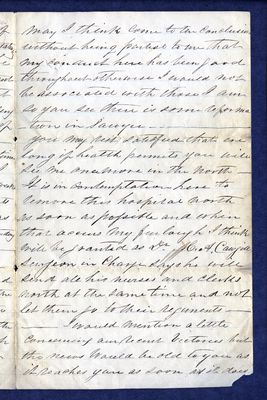 may I think come to the conclusion
without being partial to me that
my conduct here has been good
throughout otherwise I would not
be associated with those I am
so you see there is some reforma
tion in Sawyer
You may rest satisfied that so
long as health permits you will
see me once more in the North
It is in contemplation here to
remove this hospital North
as soon as possible and when
that occurs my furlough I think
will be granted as Dr
Surgeon in Charge says he will
send all his nurses and clerks
North at the same time and not
let them go to their regiments
I would mention a little
concerning our recent Victories but
the news would be old to you as
it reaches you as soon as it does